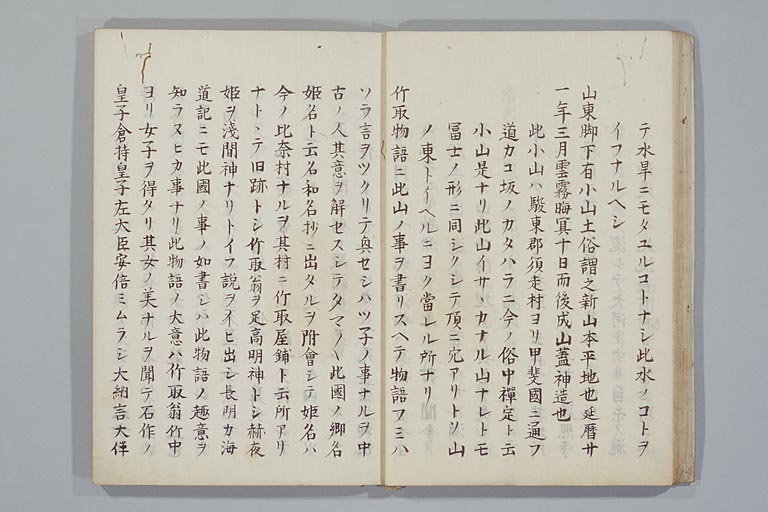 テ水旱ニモタユルコトナシ此水ノコトヲ
イフナルヘシ
山東脚下有小山土俗謂之新山本平地也延暦廿
一年三月雲霧晦冥十日而後成山蓋神造也
此小山ハ駿東郡須走村ヨリ甲斐國ニ通フ
道カコ坂ノカタハラニ今ノ俗中禪定ト云
小山是ナリ此山イサヽカナル山ナレトモ
冨士ノ形ニ同シクシテ頂ニ穴アリトシ山
ノ東トイヘルニヨク當レル所ナリ
竹取物語ニ此山ノ事ヲ書リスヘテ物語フミハ
ソラ言ヲツクリテ興セシハツ子ノ事ナルヲ中
古ノ人其意ヲ解セスシテタマ〳〵此國ノ郷名
姫名ト云名和名抄ニ出タルヲ附會シテ姫名ハ
今ノ比奈村ナルヲ其村ニ竹取屋鋪ト云所アリ
ナトヽテ旧跡トシ竹取翁ヲ足高明神トシ赫夜
姫ヲ淺間神ナリトイフ説ヲイヒ出シ長明カ海
道記ニモ此國ノ事ノ如書シハ此物語ノ趣意ヲ
知ラヌヒカ事ナリ此物語ノ大意ハ竹取翁竹中
ヨリ女子ヲ得タリ其女ノ美ナルヲ聞テ石作ノ
皇子倉持皇子左大臣安倍ミムラシ大納言大伴